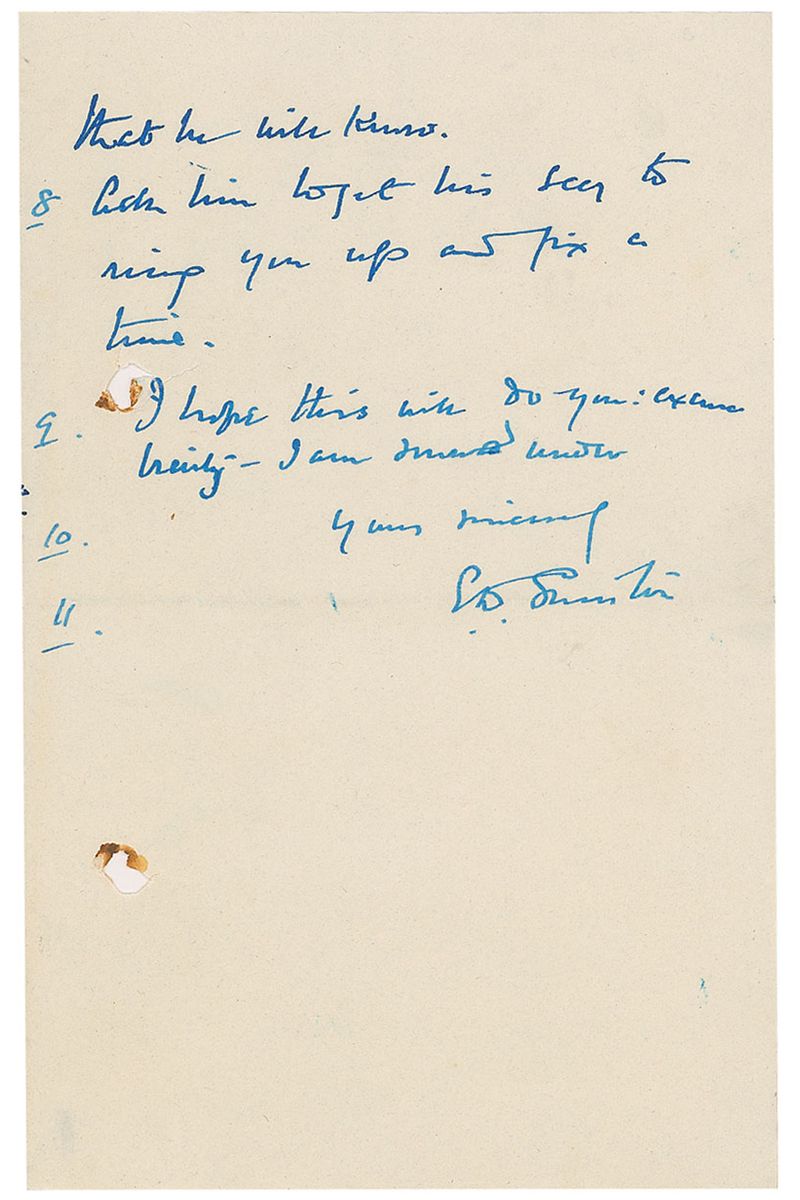 that he will know.
8 Ask him to get his secy to
ring you up and fix a
time.
9. I hope this will do you: excuse
brevity – I am snowed under
10. Yours sincerely
11.